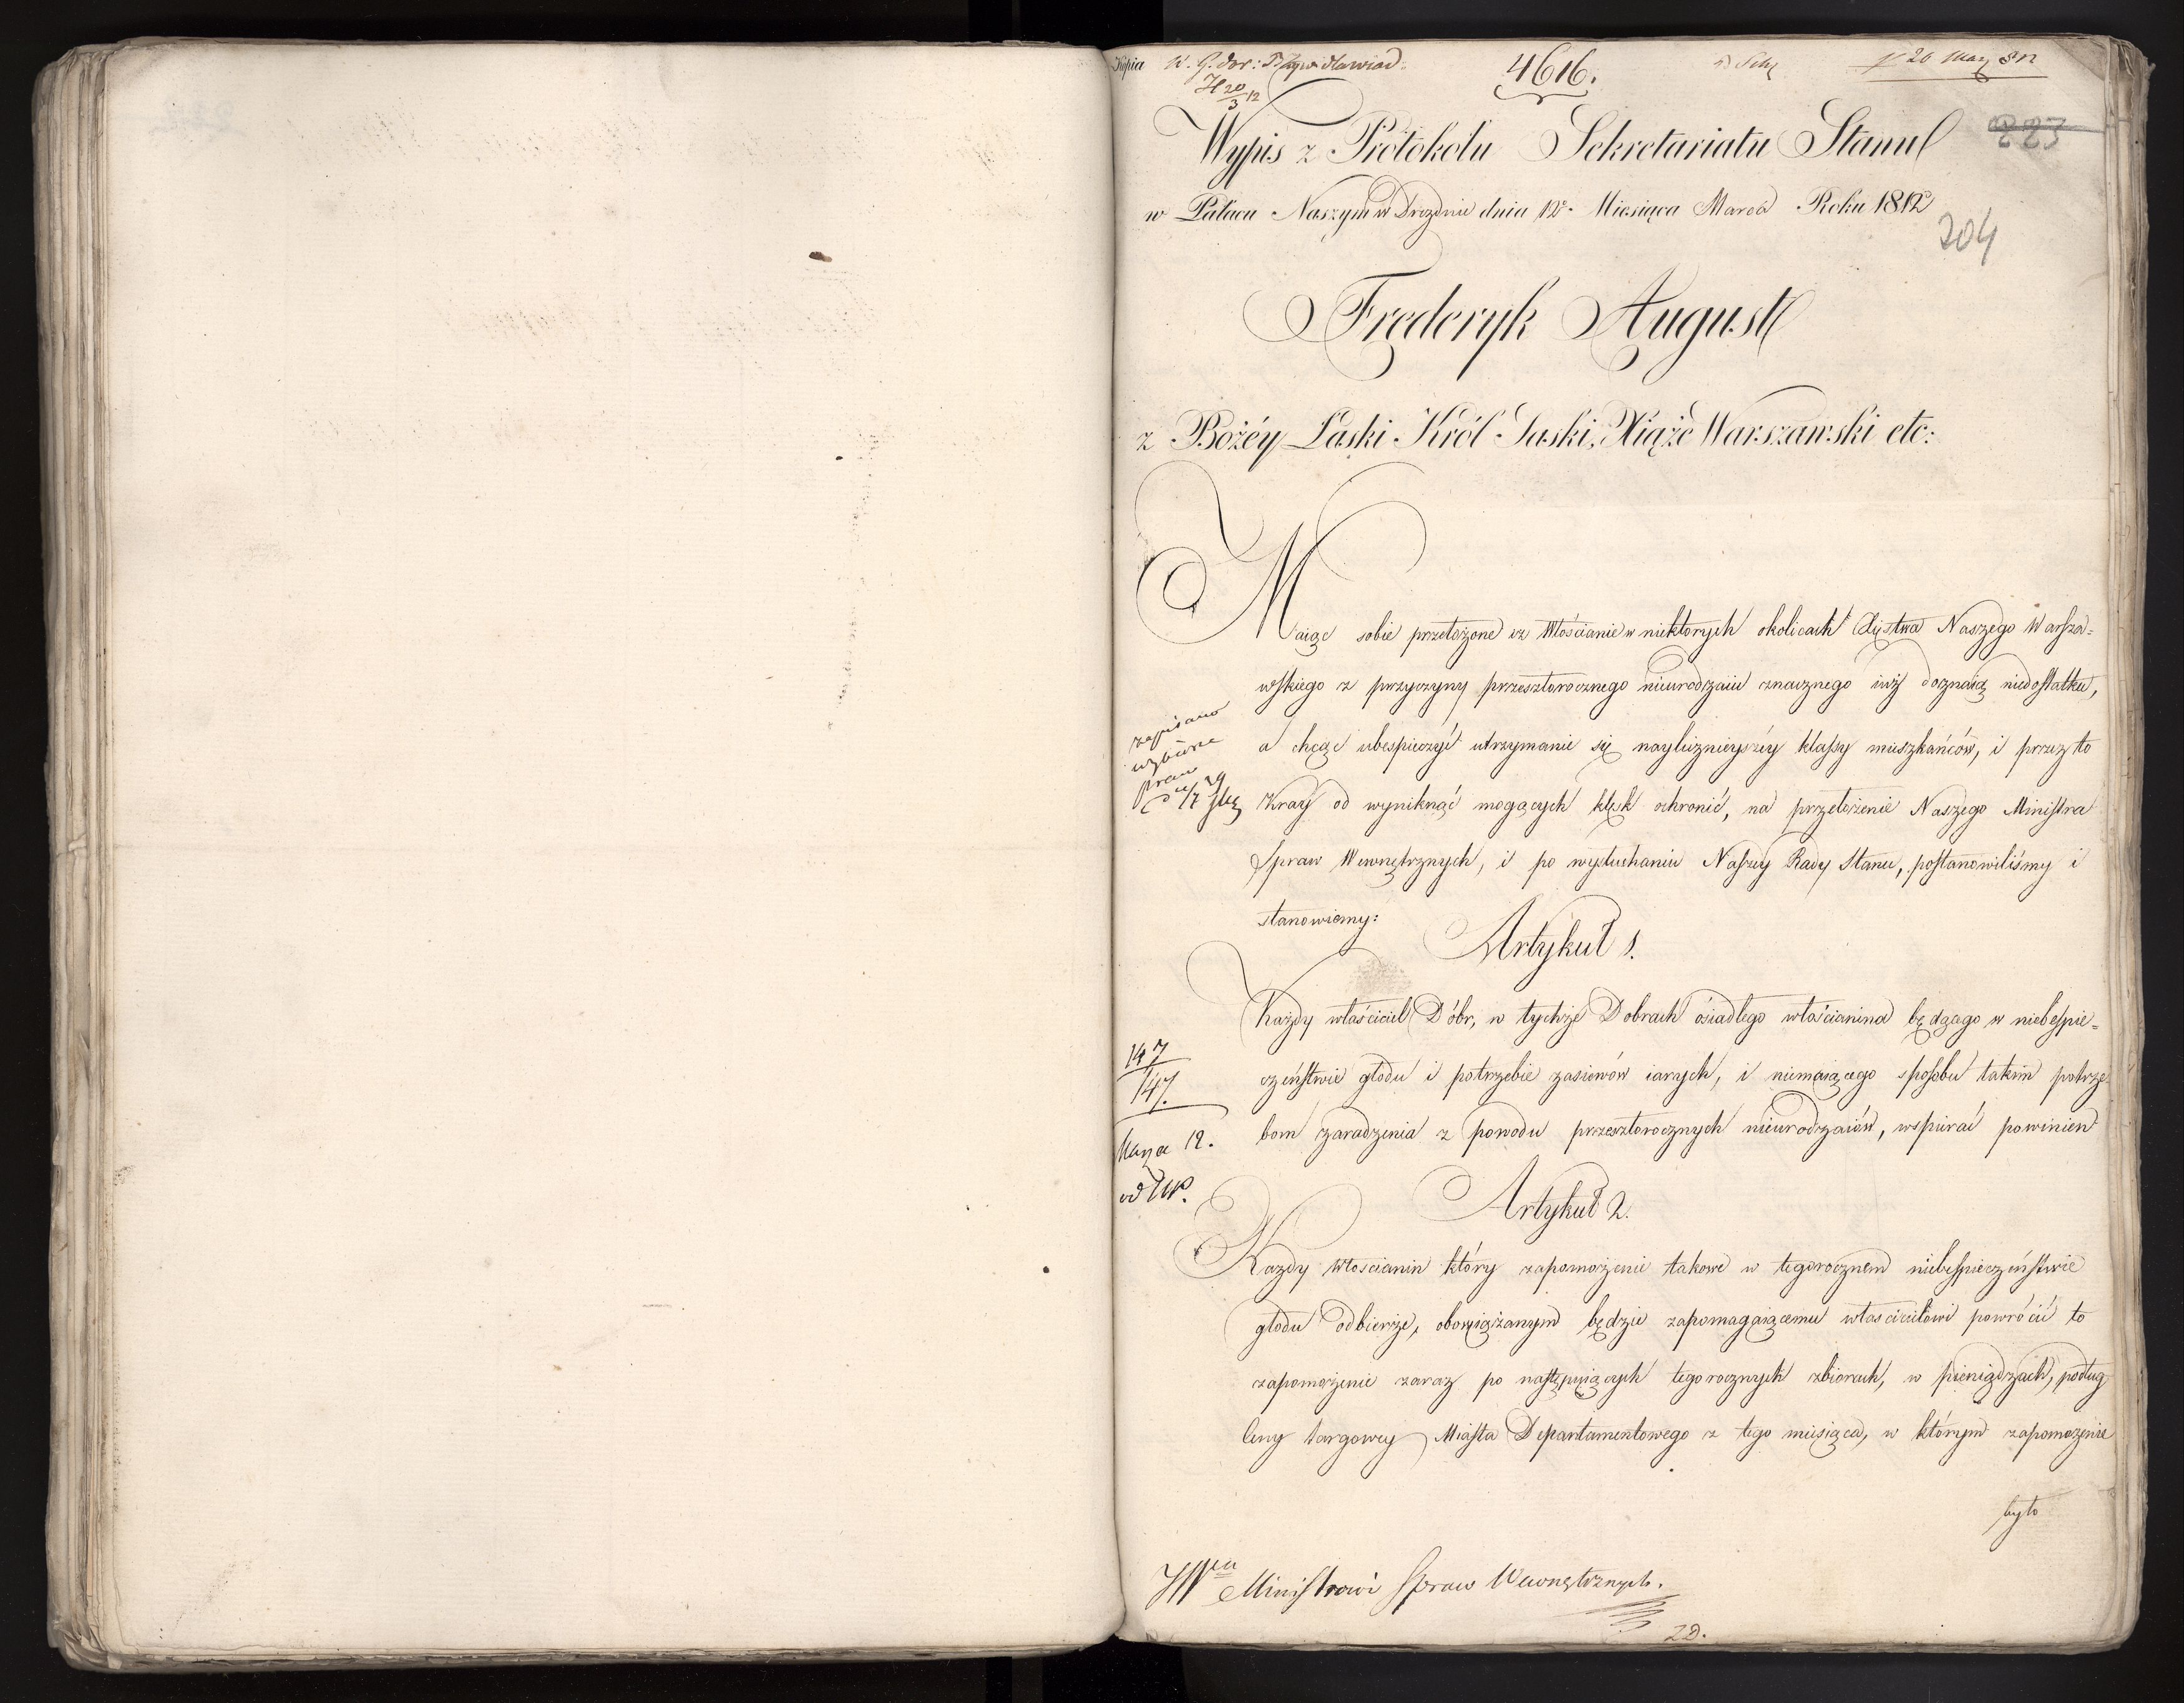 Kopia
4616.
20 Marz 812
H 20/3 12
Wypis z Protokołu Sekretariatu Stanu
223
w Pałacu Naszym w Dreznie dnia 12o. Miesiąca Marca Roku 1812
204
Frederyk August
z Bożéy Łaski Król Saski, Xiążę Warszawski etc:
Maiąc sobie przełożone iż Włościanie w niektorych okolicach Xięstwa Naszego Warsza=
wskiego z przyczyny przeszłorocznego nieurodzaiu znacznego iuż doznaią niedostatku,
a chcąc ubespieczyć utrzymanie się naylicznieyszéy klassy mieszkańców, i przez to
Kray od wyniknąć mogących klęsk ochronić, na przełożenie Naszego Ministra
Spraw Wewnętrznych, i po wysłuchaniu Naszéy Rady Stanu, postanowiliśmy i
stanowiemy:
zapisano
w zbiorze
praw
Artykuł 1.
Każdy właściciel Dóbr, w tychże Dobrach osiadłego włościanina będącego w niebespie=
czeństwie głodu i potrzebie zasiewów iarych, i niemaiącego sposobu takim potrze=
bom zaradzenia z powodu przeszłorocznych nieurodzaiów, wspierać powinien
147
147.
Marca 12.
Artykuł 2.
Każdy włoscianin który zapomożenie takowe w tegorocznem niebespieczeństwie
głodu odbierze, obowiązanym będzie zapomagaiącemu włascicielowi powrócić to
zapomożenie zaraz po następuiących tegorocznych zbiorach, w pieniądzach, podług
Ceny targowey Miasta Departamentowego z tego miesiąca, w którym zapomożenie
było
JWu Ministrowi Spraw Wewnętrznych.
ZD.